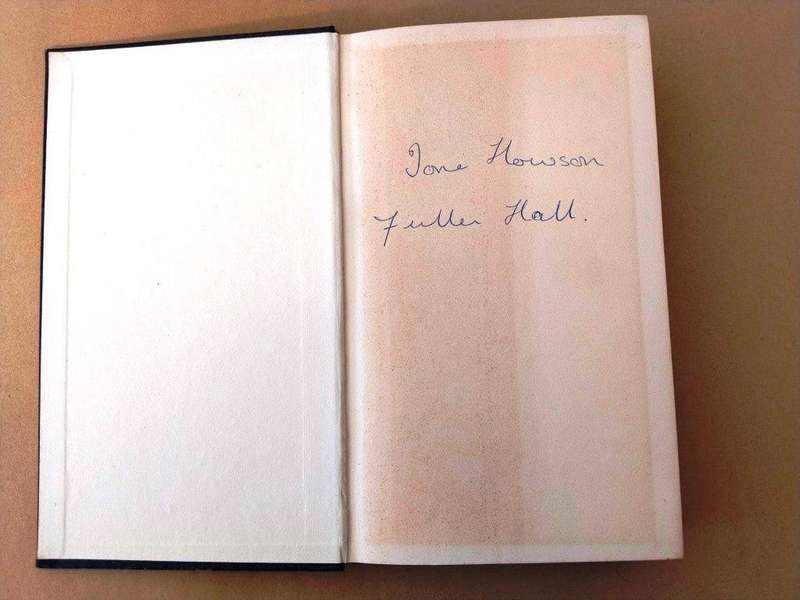 Ione Howson
Fuller Hall.